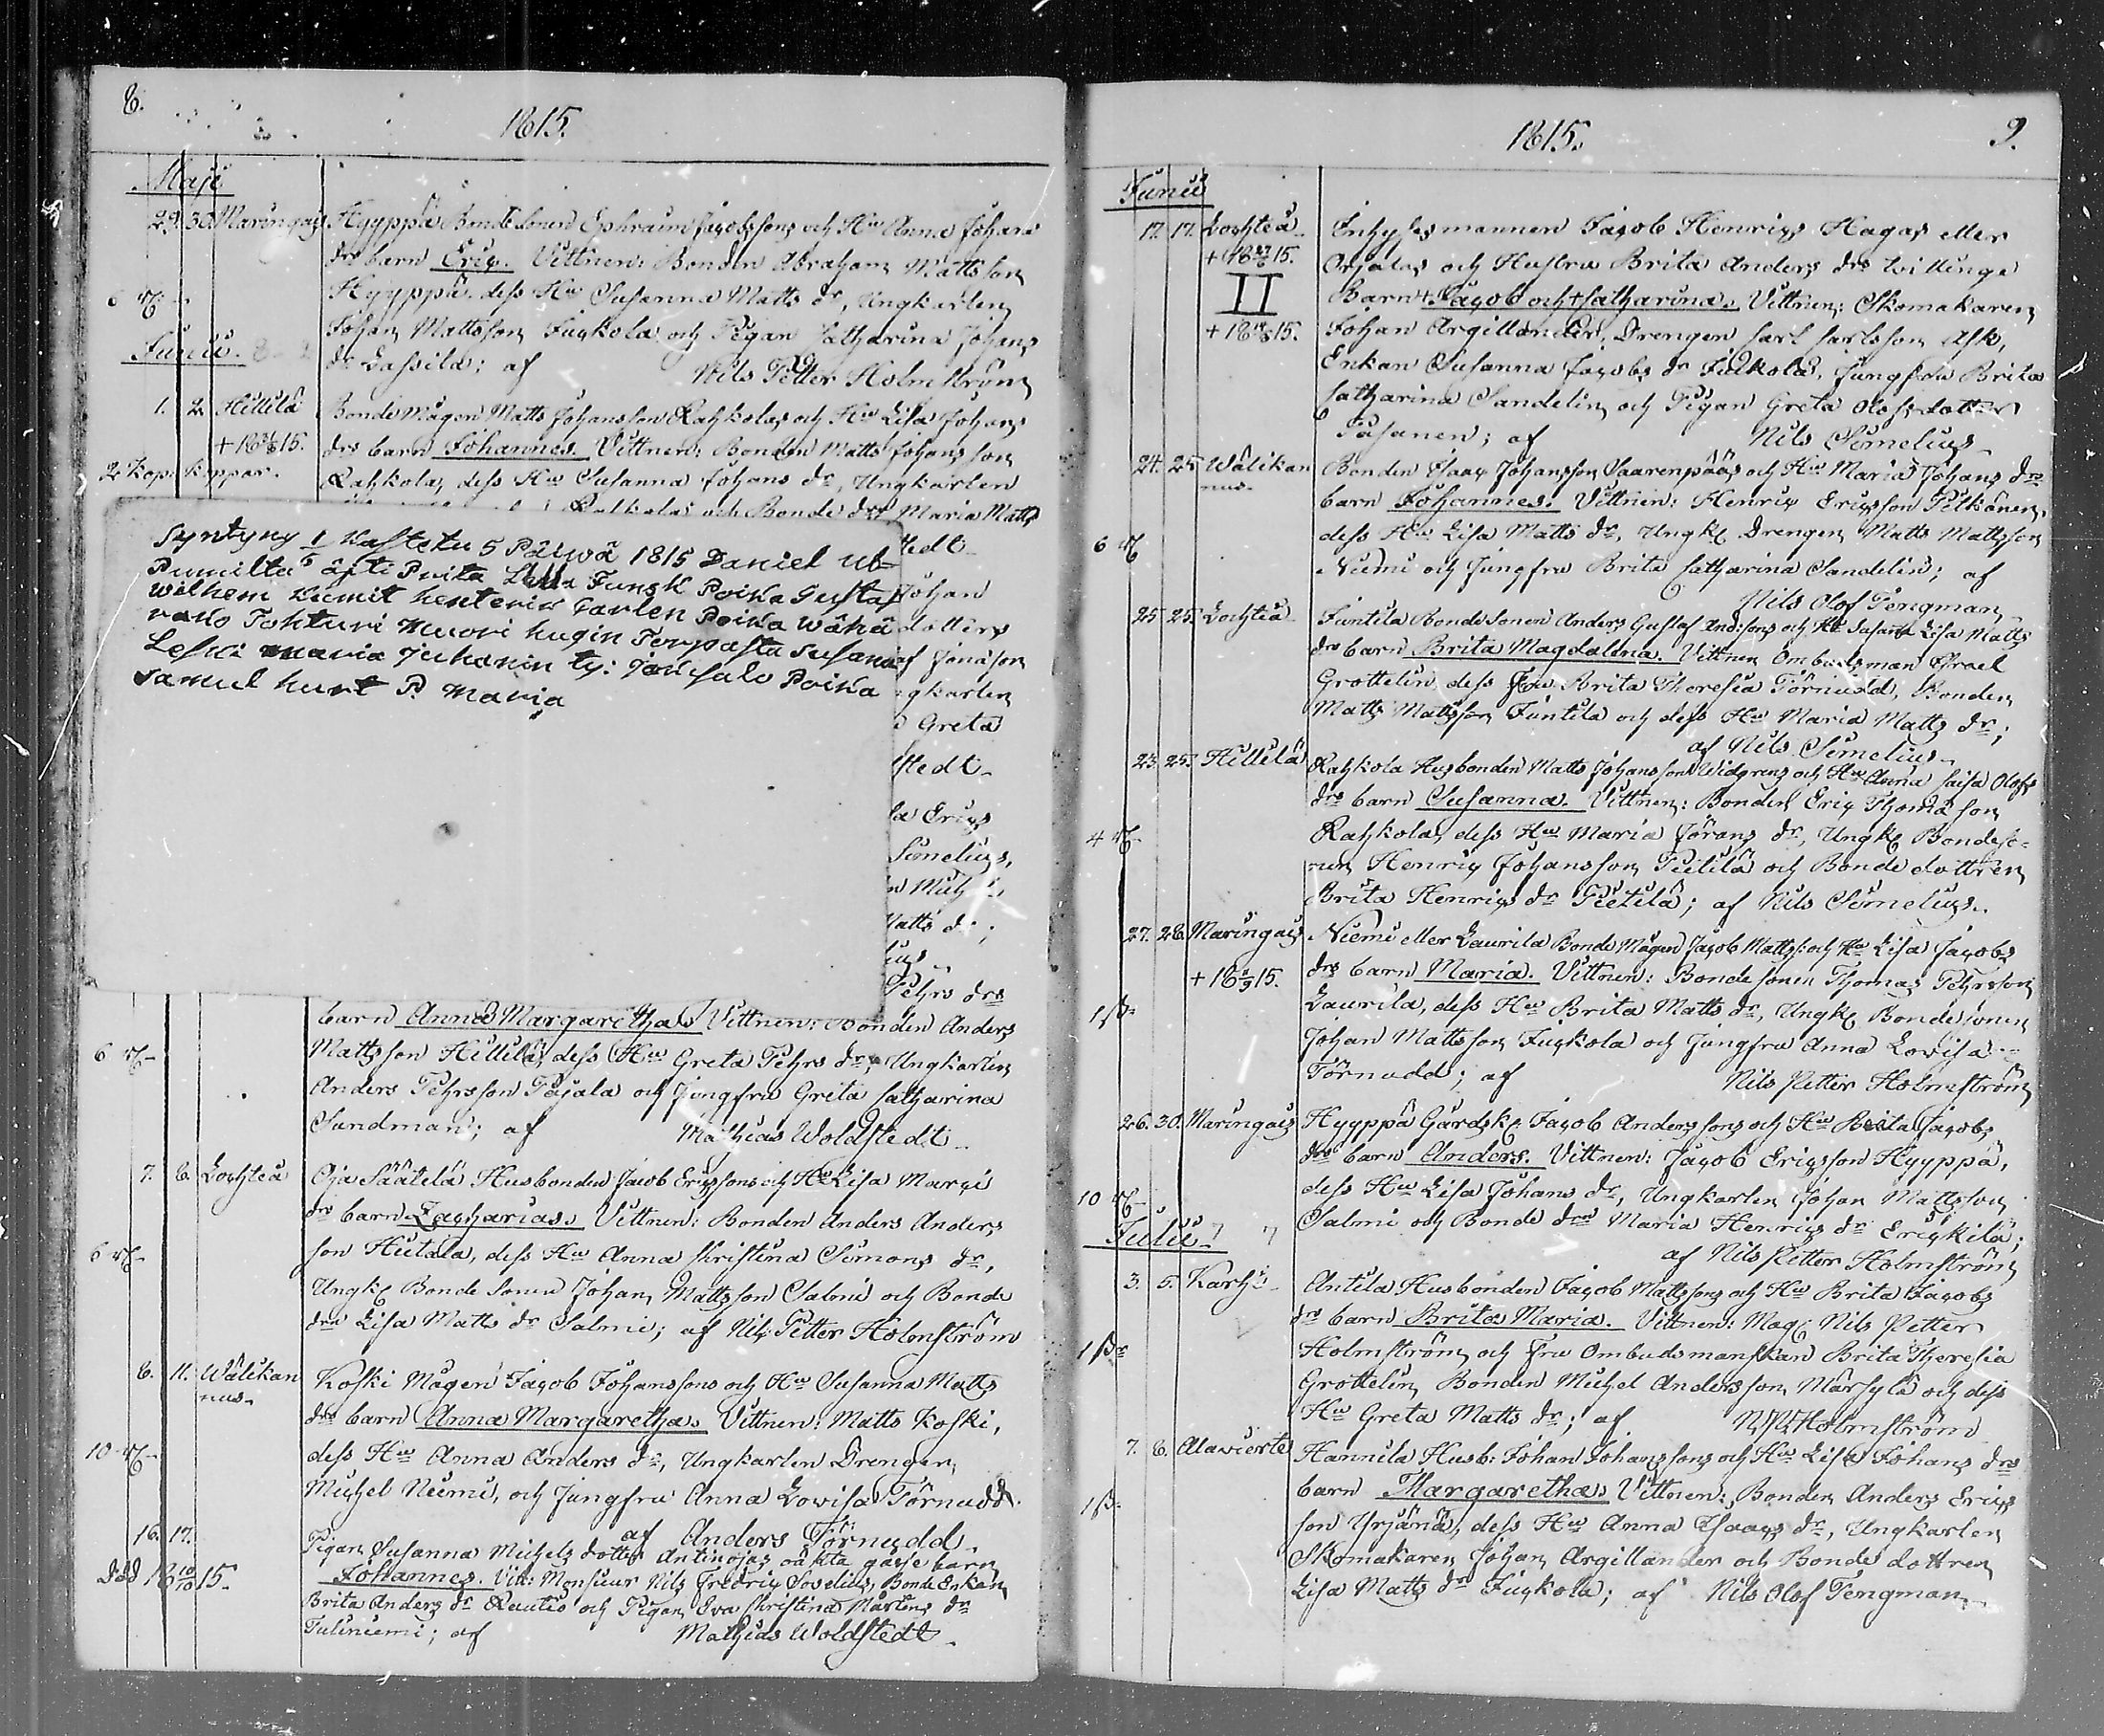 8.
1815.
Maji
29. 30. Maringais Hyyppä Bonde Sonen Ephraim Jacobssons och Hu Anna Johans
drs barn Eric. Vittnen: Bonden Abraham Mattsson
Hyyppä, dess Hu Susanna Matts dr, Ungkarlen
Johan Mattsson Juckola och Pigan Catharina Johans
Junii.
dr Lassila; af Nils Petter Holmström
1. 2. Hillilä Bonde Mågen Matts Johansson Rahkolas och Hu Lisa Johans
15. drs barn Johannes. Vittnen: Bonden Matts Johansson
2 kop: koppar. Rahkola, dess Hu Susanna Johans dr, Ungkarlen
Rahkola och Bonde dr Maria Matts
Syntyny 1 Kastetu 5 Päiwä 1815 Daniel
äpti Prita Poika Gustaf
Wilhem Poika
Tohturi Susanna
Leski maria juhanin ty: Poika
Samuel P. Maria
stedt
Johan
dotters
Jonasson
ngkarlen
Greta
stedt
la Erics
Simelius,
n Michels
Matts dr;
ius
Pehrs drs
barn Anna Margaretha. Vittnen: Bonden Anders
Mattsson Hillilä, dess Hu Greta Pehrs dr, Ungkarlen
Anders Pehrsson Pajala och Jungfru Greta Catharina
Sandman; af Mathias Woldstedt
7. 8. Lochteå Oja Säätelä Husbonden Jacob Ericssons och Hu Lisa Marci
drs barn Zacharias. Vittnen: Bonden Anders Anders
son Hietala, dess Hu Anna Christina Simons dr,
Ungk: Bonde Sonen Johan Mattsson Salmi och Bonde
drn Lisa Matts dr Salmi; af Nils Petter Holmström
8. 11. Wälikan Koski Mågen Jacob Johanssons och Hu Susanna Matts
nus. drs barn Anna Margaretha. Vittnen: Matts Koski,
dess Hu Anna Anders dr, Ungkarlen Drengen
Michel Niemi, och Jungfru Anna Lovisa Törnudd.
af Anders Törnudd.
16. 17. Pigan Susanna Michels dotters Antinojas oäkta gåsse barn
död 18 10/10 15. Johannes. Vitt: Monsieur Nils Fredric Soselius, Bonde Enkan
Brita Anders dr Rautio och Pigan Eva Christina Mårtens dr
Tuliniemi; af Mathias Woldstedt.
1815. 9.
Junii
17. 17. Lochteå Inhysesmannen Jacob Henrics Hagas eller
15. Orjalas och Hustru Brita Anders drs tvillinge
II Barn + Jacob och + Catharina. Vittnen: Skomakaren
15. Johan Argillander, Drengen Carl Carlsson Ask,
Enkan Susanna Jacobs dr Juckola, Jungfru Brita
Catharina Sandelin och Pigan Greta Olofsdotter
Pasanen; af Nils Simelius
24. 25. Wälikan Bonden Isaac Johansson Saarenpääs och Hu Maria Johans drs
nus. barn Johannes. Vittnen: Henric Ericsson Pelkonen,
dess Hu Lisa Matts dr, Ungk: Drengen Matts Mattsson
Niemi och Jungfru Brita Catharina Sandelin; af
Nils Olof Tengman
25. 25. Lochteå Juntila Bonde Sonen Anders Gustaf Anderssons och Hu Susanna Lisa Matts
drs barn Brita Magdalena. Vittnen Ombudsman Israel
Grottelin, dess Fru Brita Theresia Törnudd, Bonden
Matts Mattsson Juntila och dess Hu Maria Matts dr;
af Nils Simelius
23. 25. Hillilä Rahkola Husbonden Matts Johanssons Widgrens och Hu Anna Caisa Olofs
drs barn Susanna. Vittnen: Bonden Eric Thomasson
Rahkola, dess Hu Maria Jörans dr, Ungk: Bondeso-
nen Henric Johansson Pietilä och Bonde dottren
Brita Henrics dr Pietilä; af Nils Simelius.
27. 28. Maringais Niemi eller Laurila Bonde Mågen Jacob Mattss: och Hu Lisa Jacobs
15. drs barn Maria. Vittnen: Bondesonen Thomas Pehrsson
Laurila, dess Hu Brita Matts dr, Ungk: Bondesonen
Johan Mattsson Juckola och Jungfru Anna Lovisa
Törnudd; af Nils Petter Holmström
26. 30. Maringais Hyyppä Gårdsk: Jacob Anderssons och Hu Brita Jacobs
drs barn Anders. Vittnen: Jacob Ericsson Hyyppä,
dess Hu Lisa Johans dr, Ungkarlen Johan Mattsson
Julii
Salmi och Bonde drn Maria Henrics dr Erickilä;
af Nils Petter Holmström
3. 5. Karhi Antila Husbonden Jacob Mattssons och Hu Brita Jacobs
drs barn Brita Maria. Vittnen: Mag: Nils Petter
Holmström och Fru Ombudsmanskan Brita Theresia
Grottelin, Bonden Michel Andersson Märsylä och dess
Hu Greta Matts dr; af N. P. Holmström
7. 8. Alavierte Hannila Husb: Johan Johanssons och Hu Lisa Johans drs
barn Margaretha. Vittnen: Bonden Anders Erics
son Yrjänä, dess Hu Anna Isaacs dr, Ungkarlen
Skomakaren Johan Argillander och Bonde dottren
Lisa Matts dr Juckola; af Nils Olof Tengman